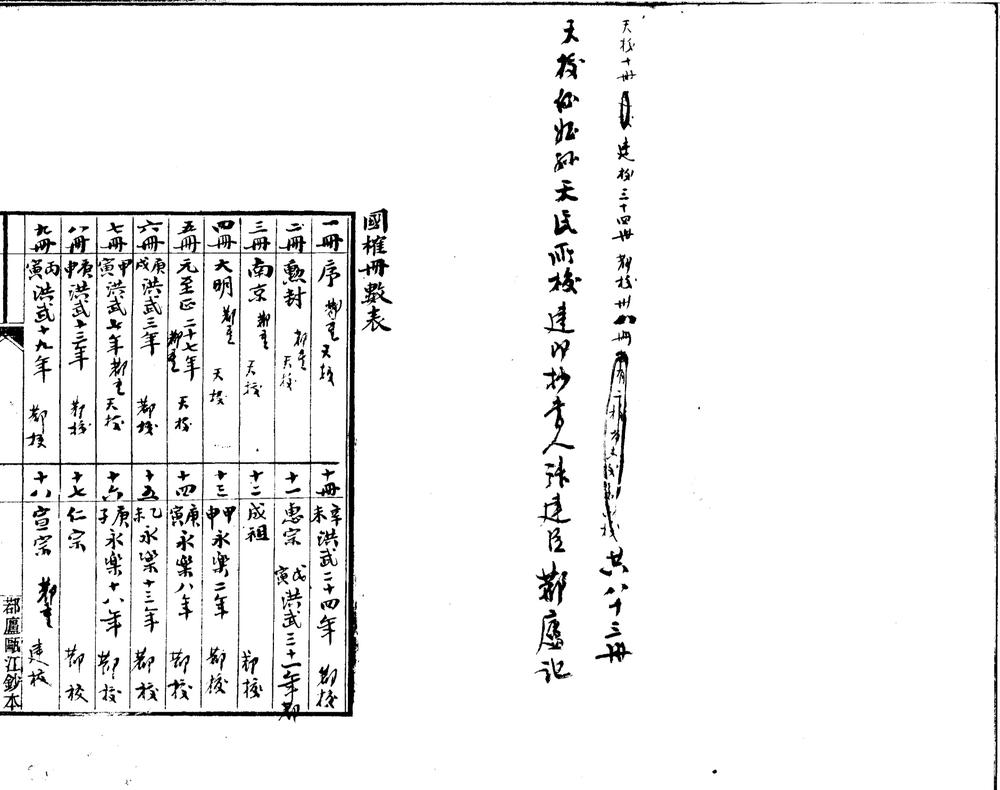 天校十冊 建校三十四冊 鄀校卅八冊 共八十三冊
天校 侄孫天民所校 建即抄書人張建臣 鄀廬記
國榷冊數表
一冊 序 鄀重 天校
二冊 勲封 鄀重 天校
三冊 南京 鄀重 天校
四冊 大明 鄀重 天校
五冊 元至正二十七年 鄀重 天校
六冊 庚戌 洪武三年 鄀校
七冊 甲寅 洪武七年 鄀重 天校
八冊 庚申 洪武十三年 鄀校
九冊 丙寅 洪武十九年 鄀校
十冊 辛未 洪武二十四年 鄀校
十一 惠宗 戊寅 洪武三十一年 鄀
十二 成祖 鄀校
十三 甲申 永樂二年 鄀校
十四 庚寅 永樂八年 鄀校
十五 乙未 永樂十三年 鄀校
十六 庚子 永樂十八年 鄀校
十七 仁宗 鄀校
十八 宣宗 鄀重 建校
鄀廬甌江鈔本